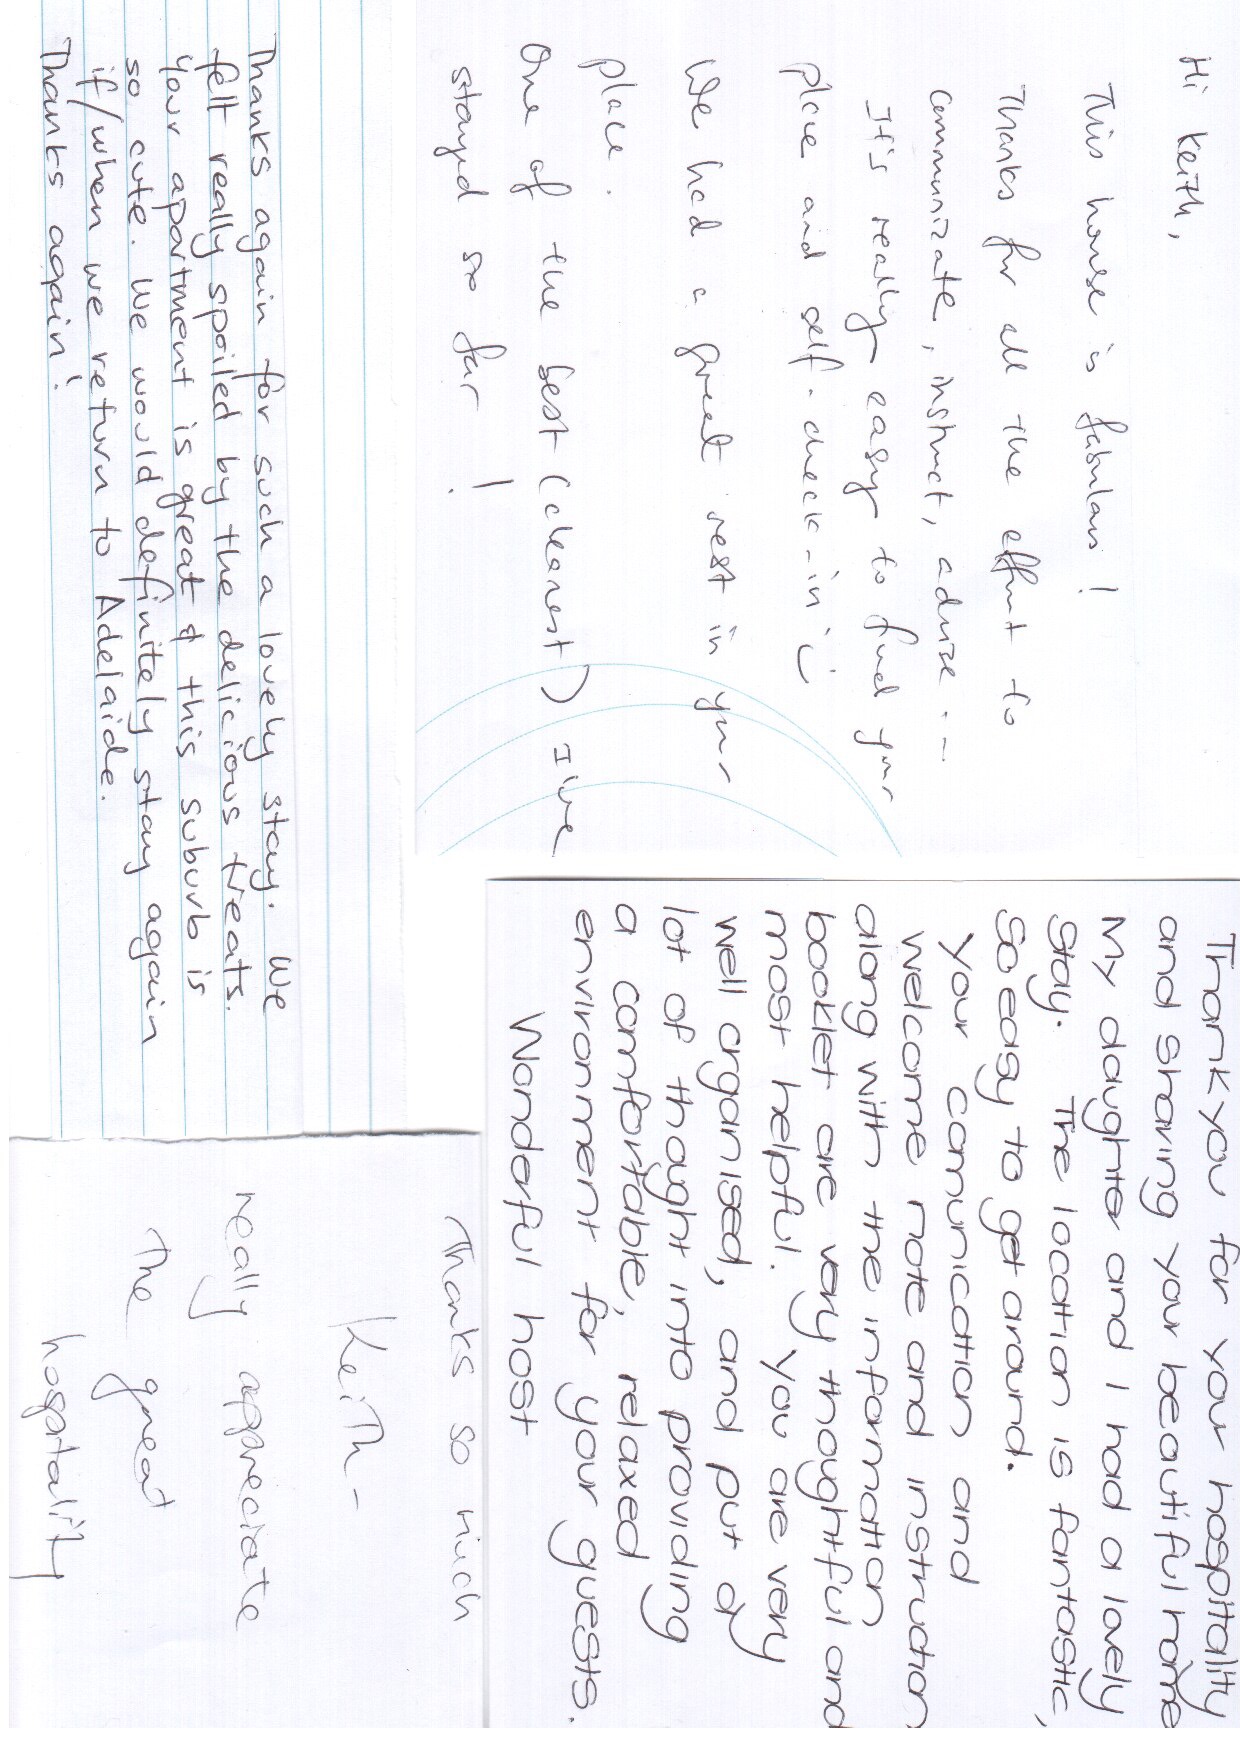 Hi Keith,
This house is fabulous!
Thanks for all the effort to
communicate, instruct, advise ...
It's really easy to find your
place and self-check-in :)
We had a great rest in your
place.
One of the best (cleanest) I've
stayed so far!
Thank you for your hospitality
and sharing your beautiful home
My daughter and I had a lovely
stay. The location is fantastic,
so easy to get around.
Your comunication and
welcome note and instruction
along with the information
booklet are very thoughtful and
most helpful. You are very
well organised, and put a
lot of thought into providing
a comfortable, relaxed
environment for your guests.
Wonderful host
Thanks again for such a lovely stay. We
felt really spoiled by the delicious treats.
Your apartment is great & this suburb is
so cute. We would definitely stay again
if/when we return to Adelaide.
Thanks again!
Thanks so much
Keith -
really appreciate
the great
hospitality